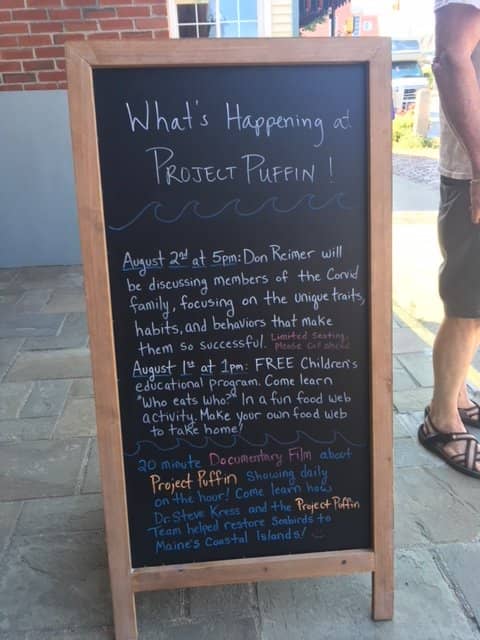 What's Happening at
PROJECT PUFFIN!
August 2nd at 5pm: Don Reimer will
be discussing members of the Corvid
family, focusing on the unique traits,
habits, and behaviors that make
them so successful. Limited Seating,
Please Call ahead
August 1st at 1pm: FREE Children's
educational program. Come learn
"Who eats who?" In a fun food web
activity. Make your own food web
to take home!
20 minute Documentary Film about
Project Puffin Showing daily
on the hour! Come learn how
Dr. Steve Kress and the Project Puffin
Team helped restore Seabirds to
Maine's Coastal Islands!